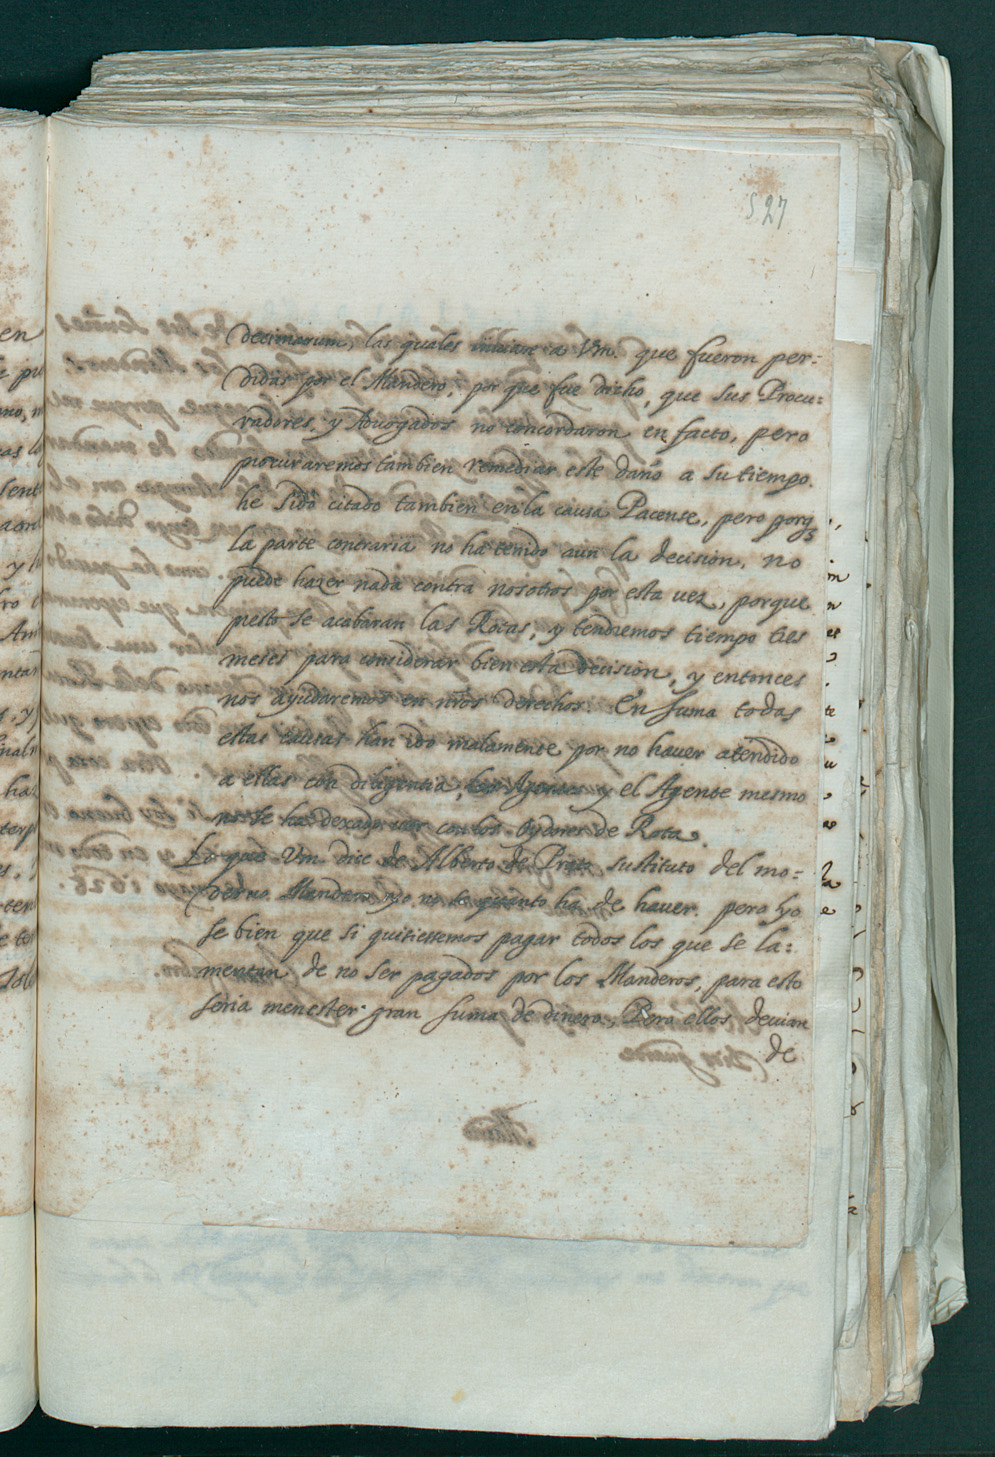 527
decimarum, las quales inviare a Vm. que fueron per=
didas por el Mandero, por que fue dicho, que sus Procu=
radores, y Avogados no concordaron en facto, pero
procuraremos tambien remediar este daño a su tiempo.
he sido citado tambien en la causa Pacense, pero porq3
la parte contraria no ha tenido aun la decision, no
puede hazer nada contra nosotros por esta vez, porque
presto se acabaran las Rotas, y tendremos tiempo tres
meses para considerar bien esta decision, y entonces
nos ayudaremos en nros derechos. En suma todas
estas causas han ido malamente por no haver atendido
a ellas con diligencia, los Agentes y el Agente mesmo
no se ha dexado ver con los Oydores de Rota.
Lo que Vm dice de Alberto de Prete sustituto del mo=
derno Manderos yo no se quanto ha de haver. pero yo
se bien que si quisiessemos pagar todos los que se la=
mentan de no ser pagados por los Manderos, para esto
seria menester gran suma de dinero, Pero ellos devian
de